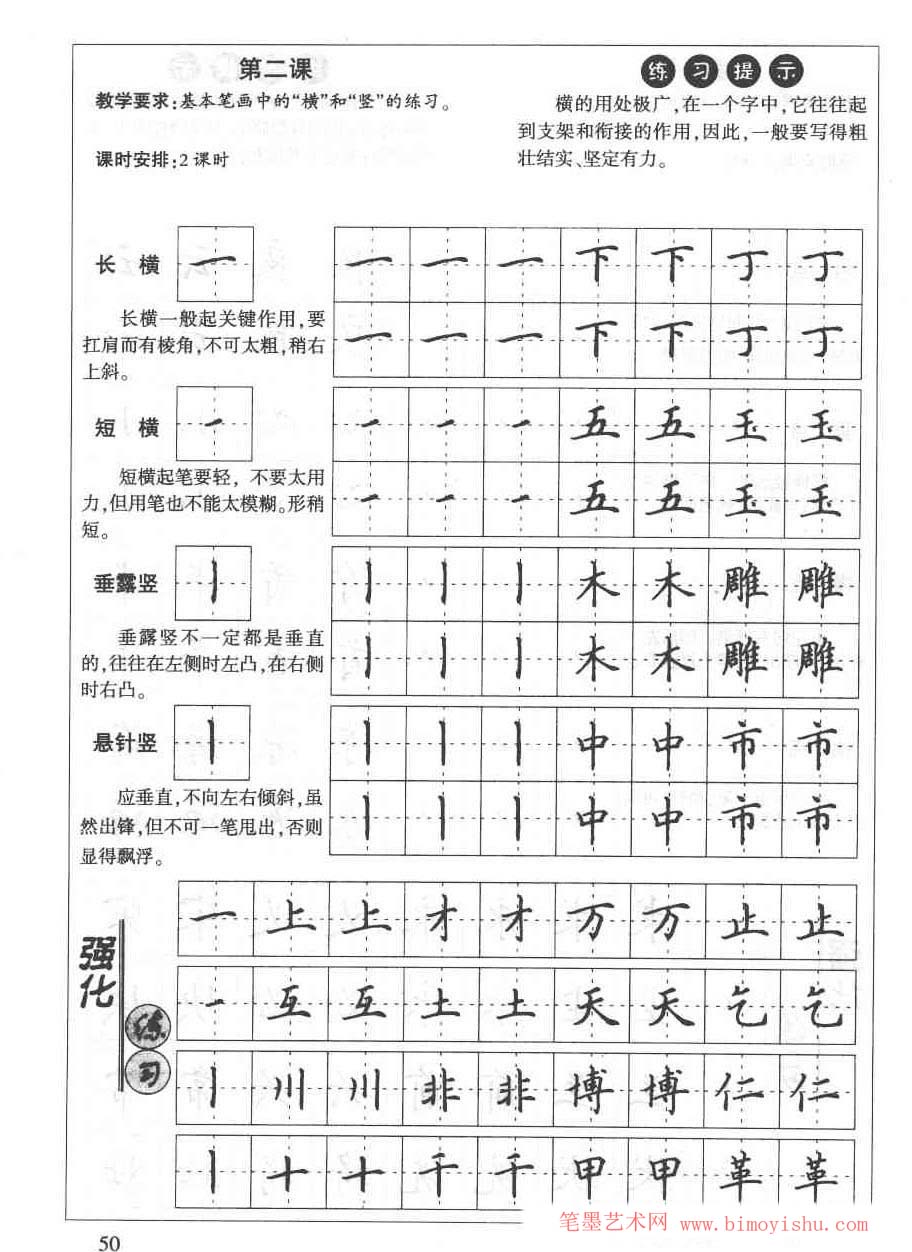 第二课
教学要求:基本笔画中的“横”和“竖”的练习。
课时安排:2 课时
练习提示
横的用处极广,在一个字中,它往往起
到支架和衔接的作用,因此,一般要写得粗
壮结实、坚定有力。
长 横 一 一 一 一 下 下 丁 丁
一 一 一 下 下 丁 丁
长横一般起关键作用,要
扛肩而有棱角,不可太粗,稍右
上斜。
短 横 一 一 一 一 五 五 玉 玉
一 一 一 五 五 玉 玉
短横起笔要轻,不要太用
力,但用笔也不能太模糊。形稍
短。
垂露竖 丨 丨 丨 丨 木 木 雕 雕
丨 丨 丨 木 木 雕 雕
垂露竖不一定都是垂直
的,往往在左侧时左凸,在右侧
时右凸。
悬针竖 丨 丨 丨 丨 中 中 市 市
丨 丨 丨 中 中 市 市
应垂直,不向左右倾斜,虽
然出锋,但不可一笔甩出,否则
显得飘浮。
强化
练习
一 上 上 才 才 万 万 止 止
一 互 互 土 土 天 天 乞 乞
丨 川 川 非 非 博 博 仁 仁
丨 十 十 千 千 甲 甲 革 革
笔墨艺术网 www.bimoyishu.com
50